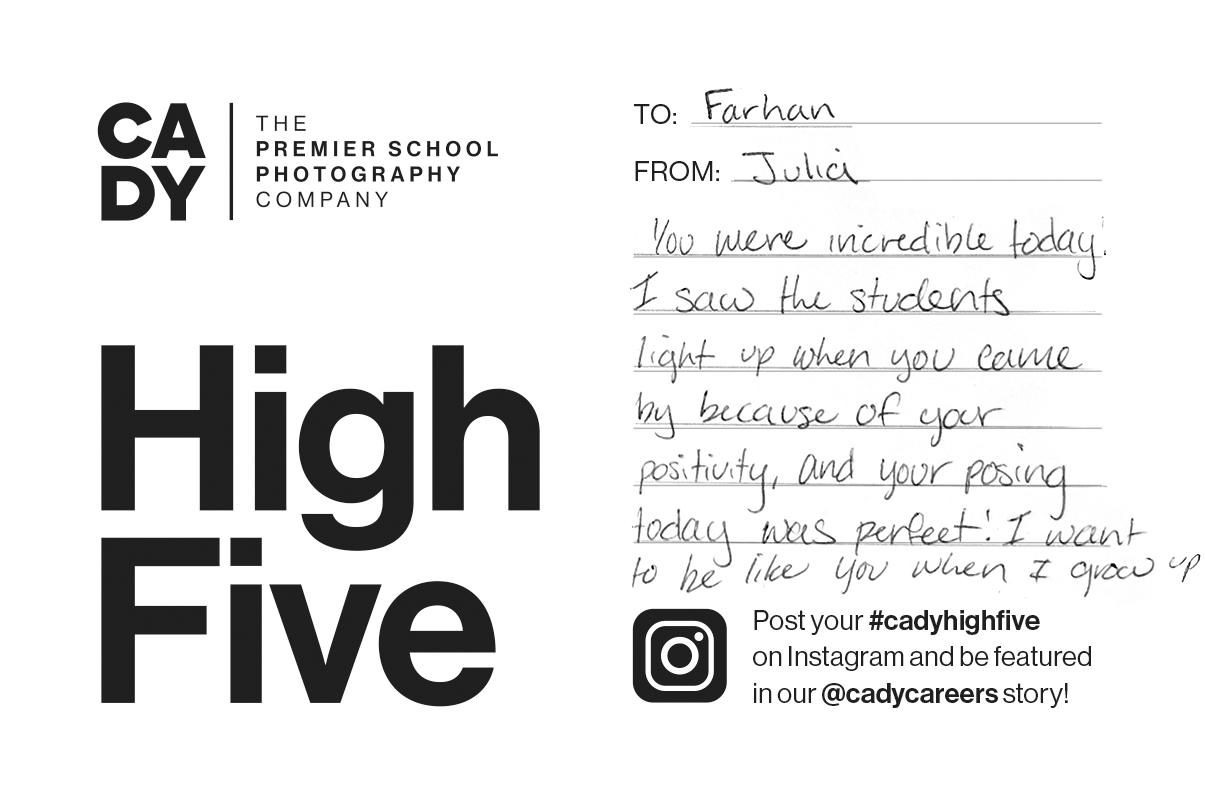 CA
DY
THE
PREMIER SCHOOL
PHOTOGRAPHY
COMPANY
High
Five
TO: Farhan
FROM: Julia
You were incredible today!
I saw the students
light up when you came
by because of your
positivity, and your posing
today was perfect! I want
to be like you when I grow up
Post your #cadyhighfive
on Instagram and be featured
in our @cadycareers story!